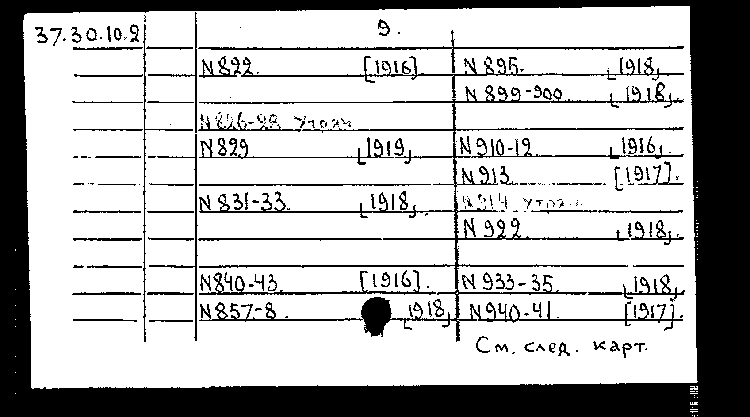 37.30.10.2 9.
N 822. [1916]
N 826-28 утрач
N 829 [1919]
N 831-33. [1918]
N 840-43. [1916].
N 857-8 [1918]
N 895. [1918]
N 899-900 [1918]
N 910-12. [1916].
N 913 [1917].
N 914 утрач
N 922. [1918].
N 933-35. [1918]
N 940-41. [1917].
См. след. карт.